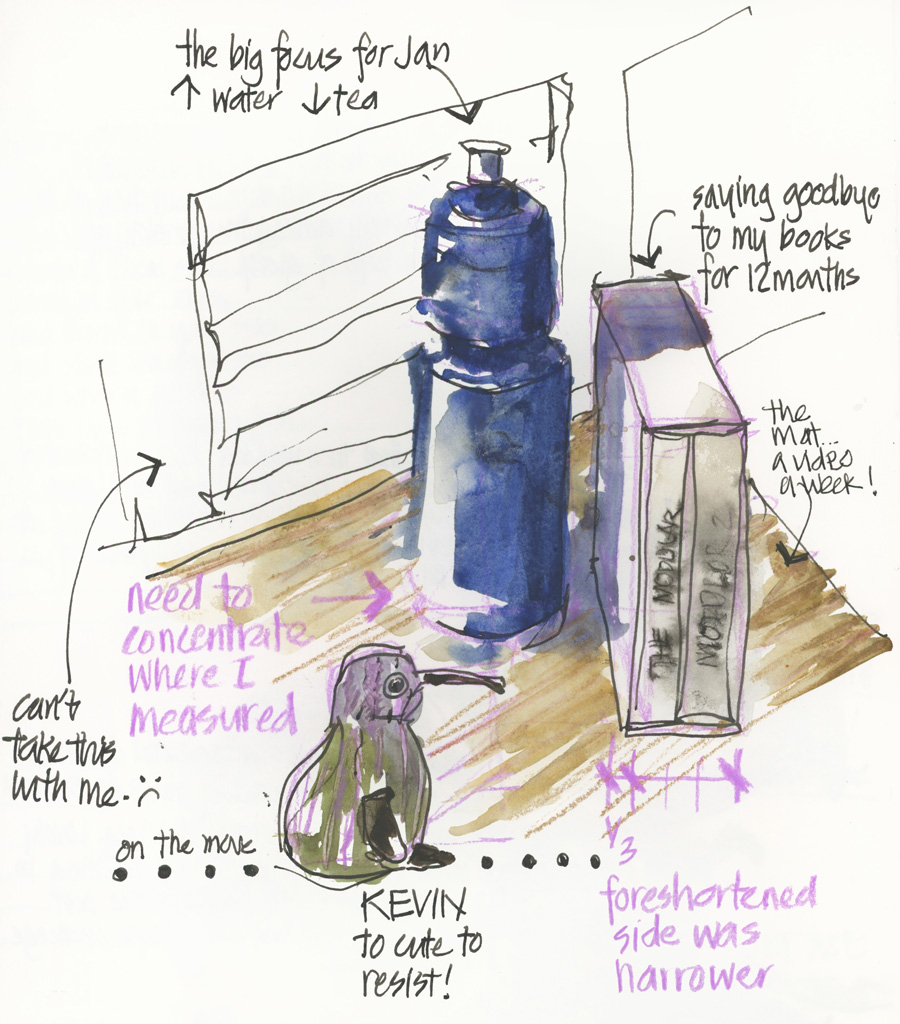 the big focus for Jan
↑ water ↓ tea
saying goodbye
to my books
for 12 months
the
mat...
a video
a week!
need to
concentrate
where I
measured
THE MODULAR
MODULOR 2
can't
take this
with me. :(
on the move
KEVIN
to cute to
resist!
3
foreshortened
side was
narrower